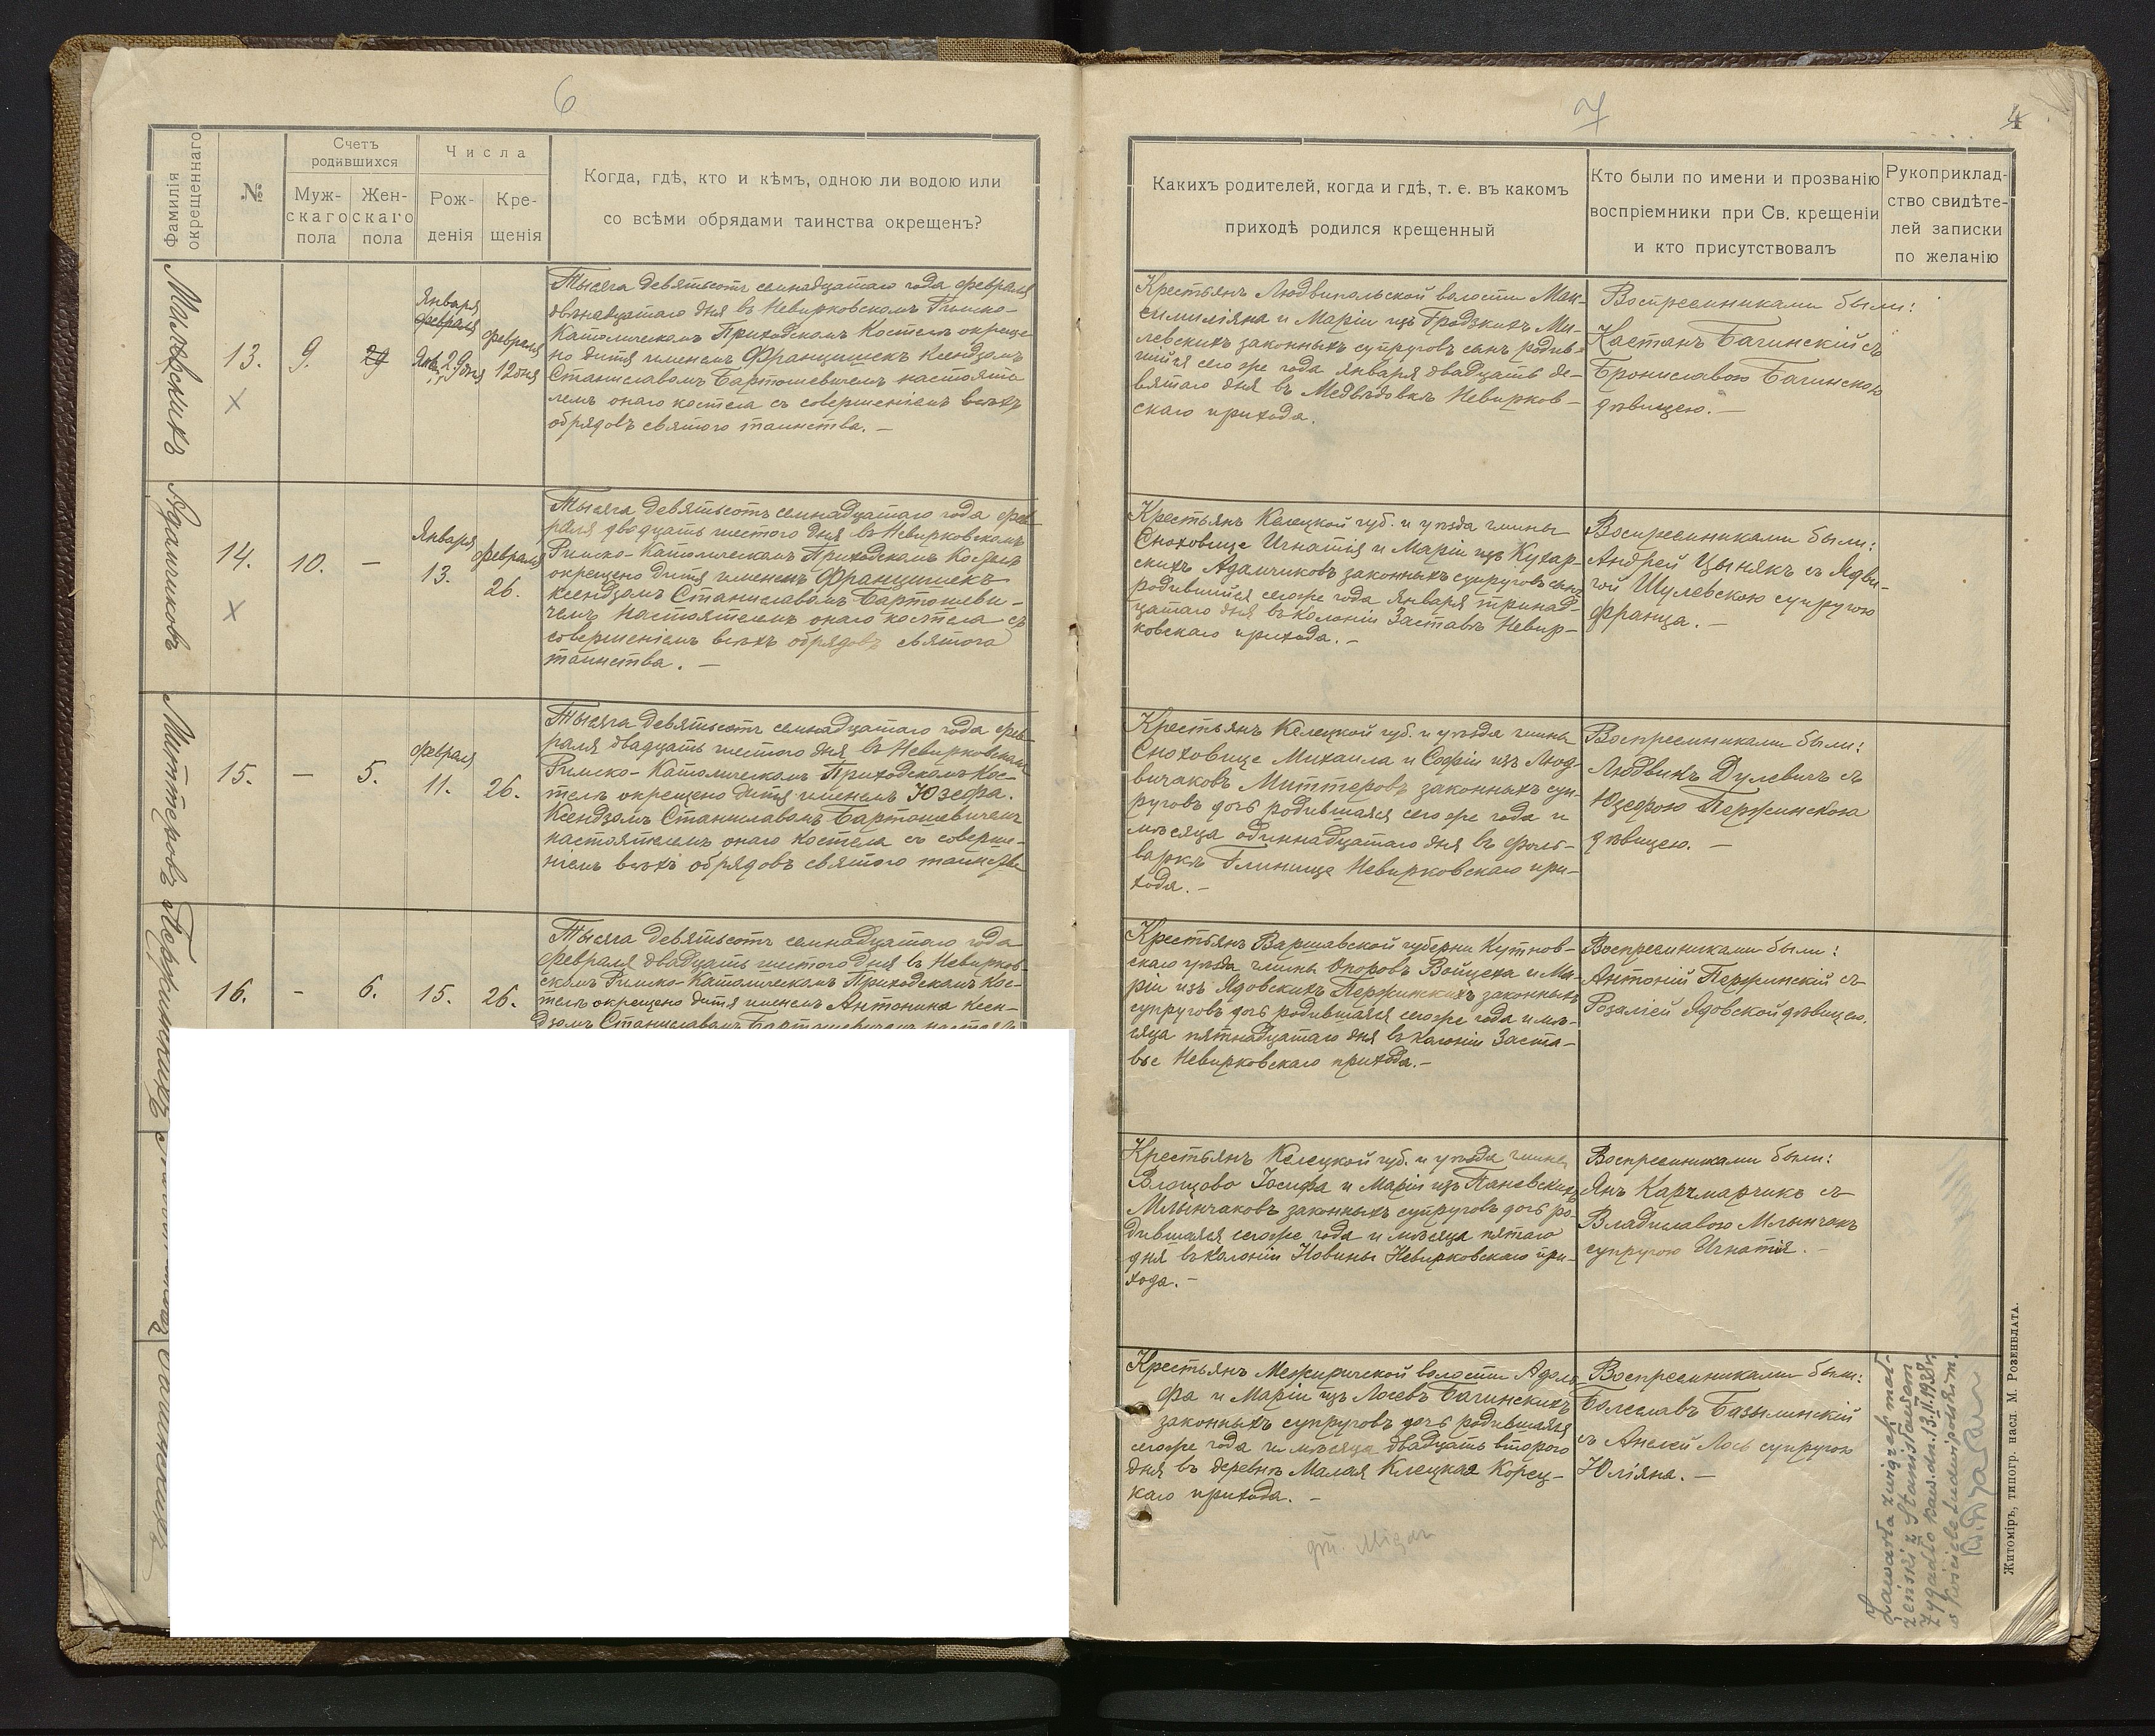 6
Фамилія
окрещеннаго
№
Счетъ
родившихся
Муж-
скаго
пола
Жен-
скаго
пола
Числа
Рож-
денія
Кре-
щенія
Когда, гдѣ, кто и кѣмъ, одною ли водою или
со всѣми обрядами таинства окрещенъ?
13.
9.
Января
февраля
29 дня
февраля
12 дня
Тысяча девятьсотъ семнадцатаго года февраля
двѣнадцатаго дня въ Невирковскомъ Римско-
Католическомъ Приходскомъ Костелѣ окреще
но дитя именемъ Францишекъ Ксендзомъ
Станиславомъ Бартошевичемъ настояте
лемъ онаго костела съ совершеніемъ всѣхъ
обрядовъ святого таинства. —
Адамчиковъ
14.
10.
—
Января
13.
февраля
26.
Тысяча девятьсотъ семнадцатаго года фев-
раля двадцать шестого дня въ Невирковскомъ
Римско-Католическомъ Приходскомъ Костелѣ
окрещено дитя именемъ Францишекъ
ксендзомъ Станиславомъ Бартошеви-
чемъ настоятелемъ онаго костела съ
совершеніемъ всѣхъ обрядовъ святого
таинства. —
Миттеровъ
15.
—
5.
февраля
11.
26.
Тысяча девятьсотъ семнадцатаго года фев-
раля двадцать шестого дня въ Невирковскомъ
Римско-Католическомъ Приходскомъ Кос-
телѣ окрещено дитя именемъ Юзефа.
Ксендзомъ Станиславомъ Бартошевичемъ
настоятелемъ онаго костела съ соверше-
ніемъ всѣхъ обрядовъ святого таинства
Пержинскихъ
16.
-
6.
15.
26.
Тысяча девятьсотъ семнадцатаго года
февраля двадцать шестого дня въ Невирков-
скомъ Римско-Католическомъ Приходскомъ Кос-
телѣ окрещено дитя именемъ Антонина Ксен-
дзомъ Станиславомъ Бартошевичемъ
7
4
Какихъ родителей, когда и гдѣ, т. е. въ какомъ
приходѣ родился крещенный
Кто были по имени и прозванію
воспріемники при Св. крещеніи
и кто присутствовалъ
Рукоприклад-
ство свидѣте-
лей записки
по желанію
Крестьянъ Людвипольской волости Мак-
симиліяна и Маріи изъ Гродзкихъ Ми-
левскихъ законныхъ супруговъ сынъ родив-
шійся сего же года января двадцать де-
вятаго дня въ Медвѣдовкѣ Невирков-
скаго прихода.
Воспреемниками были:
Каетанъ Багинскій съ
Брониславою Багинскою
дѣвицею. —
Крестьянъ Келецкой губ. и уѣзда гмины
Сноховице Игнатія и Маріи изъ Кухар-
скихъ Адамчиковъ законныхъ супруговъ сынъ
родившійся сего же года Января тринад-
цатаго дня въ колоніи Заставѣ Невир-
ковскаго прихода. —
Воспреемниками были:
Андрей Цынякъ съ Ядви-
гой Шулевскою супругою
Франца. —
Крестьянъ Келецкой губ. и уѣзда гмины
Сноховице Михаила и Софіи изъ Люд
вичаковъ Миттеровъ законныхъ суп-
руговъ дочь родившаяся сего же года и
мѣсяца одиннадцатаго дня въ фоль-
варкѣ Глинище Невирковскаго при-
хода. —
Воспреемниками были:
Людвикъ Дулевичъ съ
Юзефою Пержинскою
дѣвицею. —
Крестьянъ Варшавской губерни Кутнов-
скаго уѣзда гмины Опоровъ Войцеха и Ма-
ріи изъ Ядовскихъ Пержинскихъ законныхъ
супруговъ дочь родившаяся сего же года и мѣ-
сяца пятнадцатаго дня въ колоніи Заста-
вье Невирковскаго прихода. —
Воспреемниками были:
Антоній Пержинскій съ
Розаліей Ядовской дѣвицею.
Крестьянъ Келецкой губ. и уѣзда гмины
Влощово Іосифа и Маріи изъ Паневскихъ
Млынчаковъ законныхъ супруговъ дочь ро-
дившаяся сего же года и мѣсяца пятаго
дня въ колоніи Новины Невирковскаго при-
хода. —
Воспреемниками были:
Янъ Карчмарчикъ съ
Владиславою Млынчакъ
супругою Игнатія. —
Крестьянъ Межиричской волости Адоль
фа и Маріи изъ Лосевъ Багинскихъ
законныхъ супруговъ дочь родившаяся
сего же года и мѣсяца двадцать второго
дня въ деревнѣ Малая Клецкая Корец-
каго прихода. —
Воспреемниками были:
Болеславъ Базылинскій
съ Анелей Лось супругою
Юліяна. —
Zawarła związek mał-
żeński z Stanisławem
Zygadło kaw. dn. 13.II.1938 r.
w kościele Ludwipolskim.
Житоміръ, типогр. насл. М. Розенблата.